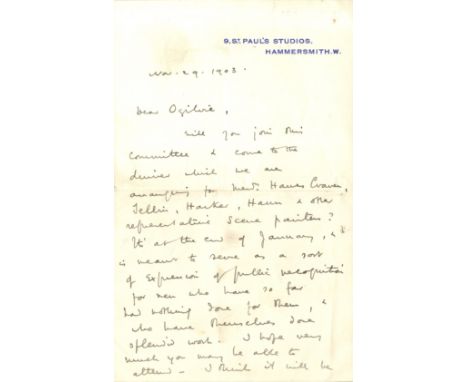 9, ST. PAUL'S STUDIOS,
HAMMERSMITH. W.
Nov. 29. 1903.
Dear Ogilvie,
Will you join this
Committee & come to the
dinner which we are
arranging for Messrs. Hawes Craven,
Telbin, Harker, Hann & other
representative Scene painters?
It's at the end of January, &
is meant to serve as a sort
of expression of public recognition
for men who have so far
had nothing done for them, &
who have themselves done
splendid work. I hope very
much you may be able to
attend - I think it will be